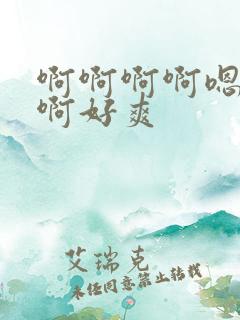 啊啊啊啊嗯
啊好爽
艾瑞克
未经同意禁止转载